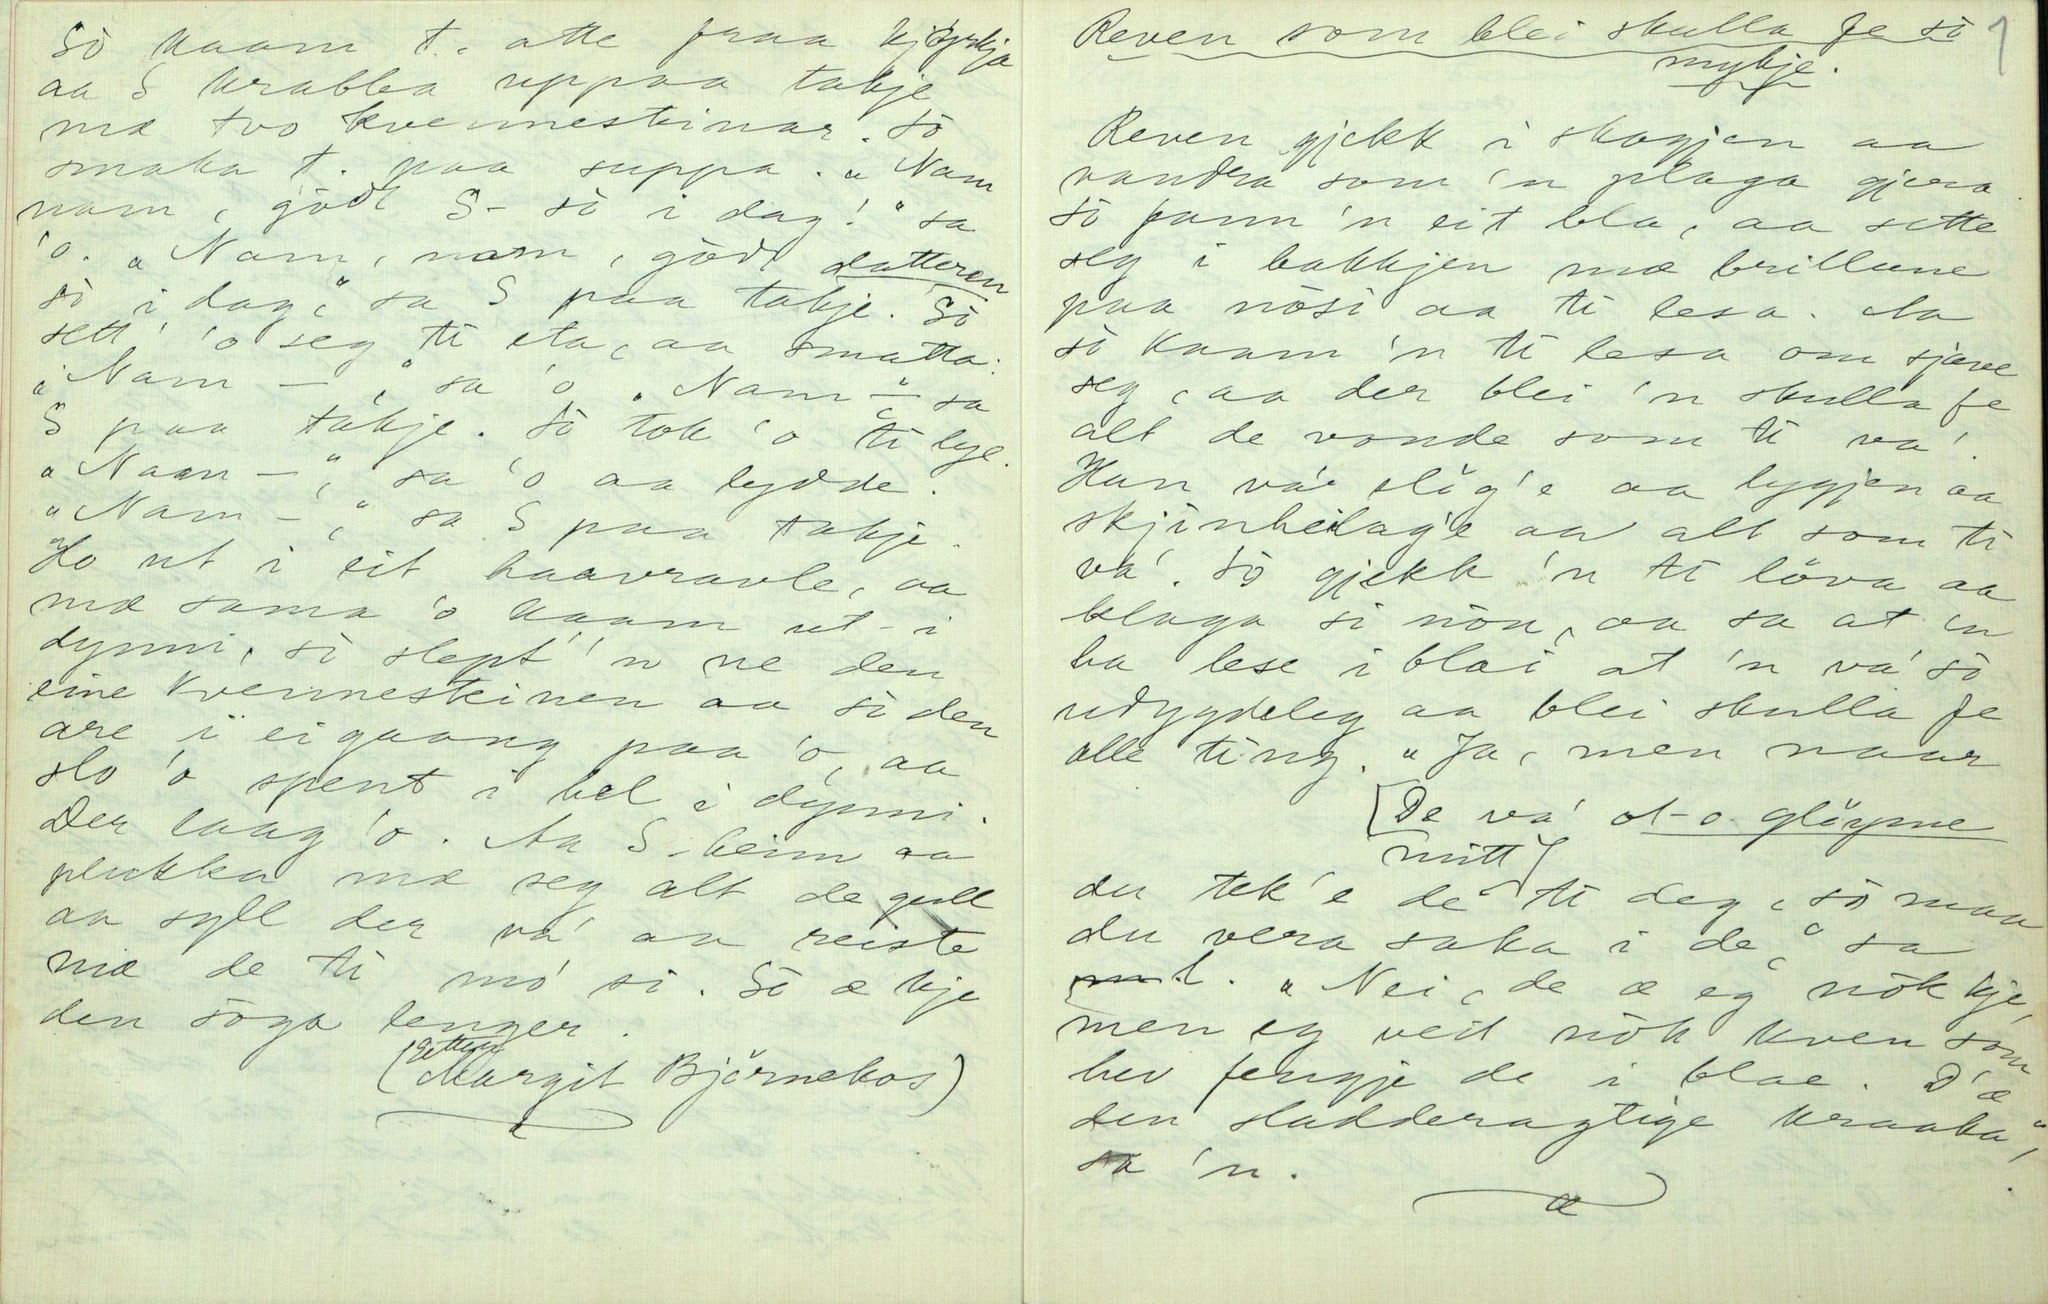 Sö kaam t. atte fraa kjörkja
aa S krabba uppaa takje
mæ tvo kvennesteinar. Sö
smaka t. paa suppa. „Nam
nam, gödt S- sö i dag!" sa
'o. „Nam, nam, gödt datteren
sö i dag," sa S paa takje. Sö
sett' 'o seg ti eta, aa smatta:
„Nam –," sa 'o „Nam –" sa
S paa takje. Sö tok 'o ti lye.
„Nam –," sa 'o aa lydde.
„Nam –," sa S paa takje.
Ho ut i eit haavravle, aa
mæ sama 'o kaam ut i
dynni, so slept' 'n ne den
eine kvennesteinen aa so den
are i eigaang paa 'o, aa
slo 'o spent i hel i dynni.
Der laag 'o. Aa S. heim aa
plukka mæ seg alt de gull
aa syll der va' aa reiste
mæ de ti mo' si. Sö æ kje
den söga lenger.
(Etter Margit Björnekos)
Reven som blei skulla fe so 1
mykje.
Reven gjekk i skogjen aa
vandra som 'n plaga gjera
So fann 'n eit bla, aa sette
seg i bakkjen mæ brillune
paa nösi aa ti lesa. Aa
so kaam 'n ti lesa om sjave
seg, aa der blei 'n skulla fe
alt de vonde som ti va'.
Han va' slög'e aa lygjen aa
skjinheilag'e aa alt som ti
va'. Sö gjekk 'n ti löva aa
klaga si nöu, aa sa at 'n
ha lese i blai at 'n va' so
udygdeleg aa blei skulla fe
alle ting. „Ja, men naar
[De va' ot-o glöyme
mitt]
du tek'e de ti deg, sö maa
du vera saka i de," sa
l. „Nei, de æ eg nök kje,
men eg veit nök kven som
hev fengje de i blae. D'æ
den sladderagtige kraaka",
sa 'n.